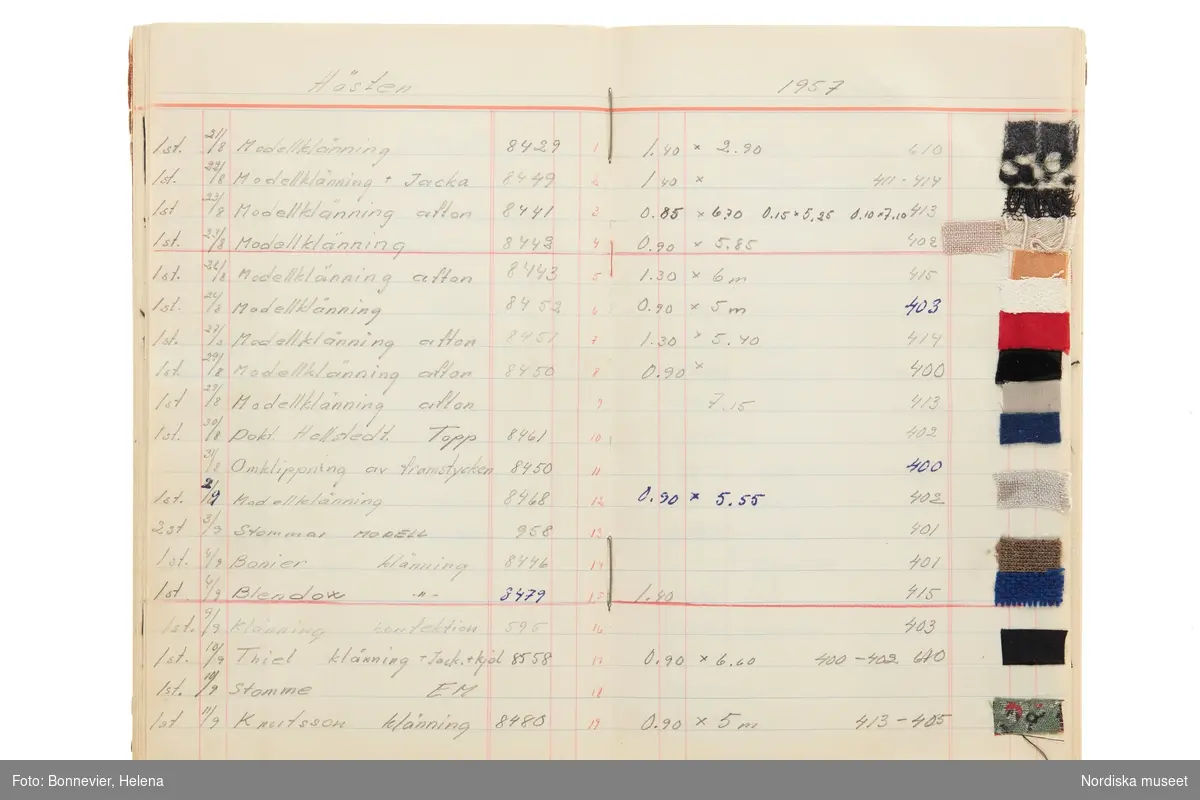 Hösten 1957
1st. 21/8 Modellklänning 8429 1 1.40 × 2.90 610
1st. 22/8 Modellklänning + Jacka 8449 2 1.40 × 411-414
1st 23/8 Modellklänning afton 8441 3 0.85 × 6.70 0.15×5.25 0.10×7.10 413
1st. 23/8 Modellklänning 8443 4 0.90 × 5.85 402
1st. 26/8 Modellklänning afton 8443 5 1.30 × 6 m 415
1st. 26/8 Modellklänning 8452 6 0.90 × 5 m 403
1st. 27/8 Modellklänning afton 8451 7 1.30 × 5.40 414
1st. 29/8 Modellklänning afton 8450 8 0.90 × 400
1st 29/8 Modellklänning afton 9 7.15 413
1st. 30/8 Dokt. Hellstedt. Topp 8461 10 402
31/8 Omklippning av framstycken 8450 11 400
1st. 2/9 Modellklänning 8468 12 0.90 × 5.55 402
2st 3/9 Stommar MODELL 958 13 401
1st. 4/9 Bonier klänning 8446 14 401
1st. 4/9 Blendow -"- 8479 15 1.40 415
1st. 9/9 Klänning konfektion 595 16 403
1st. 10/9 Thiel klänning + Jack.+kjol 8558 17 0.90 × 6.60 400-402 610
1st. 10/9 Stomme EM 18
1st 11/9 Knutsson klänning 8480 19 0.90 × 5 m 413-405
Foto: Bonnevier, Helena Nordiska museet